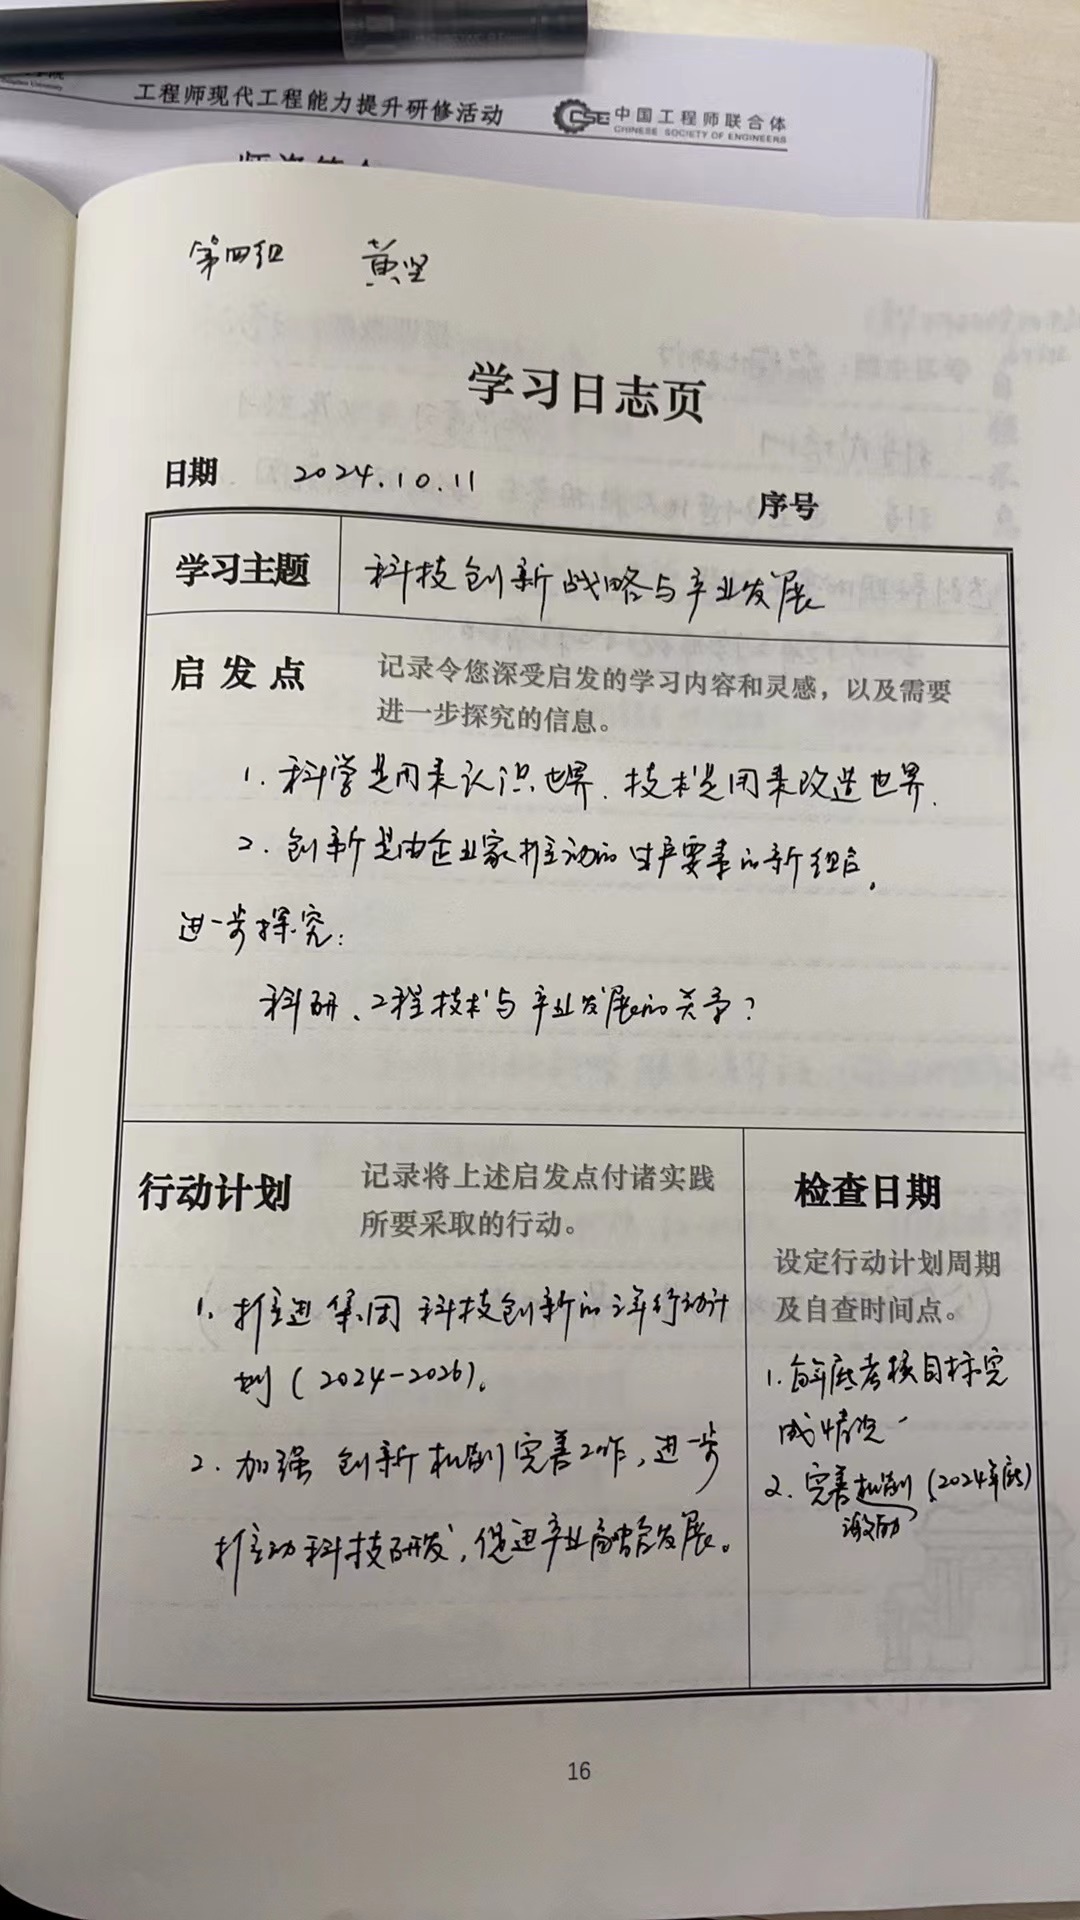 工程师现代工程能力提升研修活动
CSE 中国工程师联合体
CHINESE SOCIETY OF ENGINEERS
第四组 黄坚
学习日志页
日期 2024.10.11
序号
学习主题 科技创新战略与产业发展
启发点 记录令您深受启发的学习内容和灵感，以及需要
进一步探究的信息。
1. 科学是用来认识世界、技术是用来改造世界.
2. 创新是由企业家推动的生产要素的新组合。
进一步探究:
科研、工程技术与产业发展的关系?
行动计划 记录将上述启发点付诸实践
所要采取的行动。
1. 推进集团科技创新的三年行动计
划(2024-2026)。
2. 加强创新机制完善工作,进一步
推动科技研发,促进产业高质量发展。
检查日期
设定行动计划周期
及自查时间点。
1. 每年底考核目标完
成情况
2. 完善机制(2024年底)
激励
16